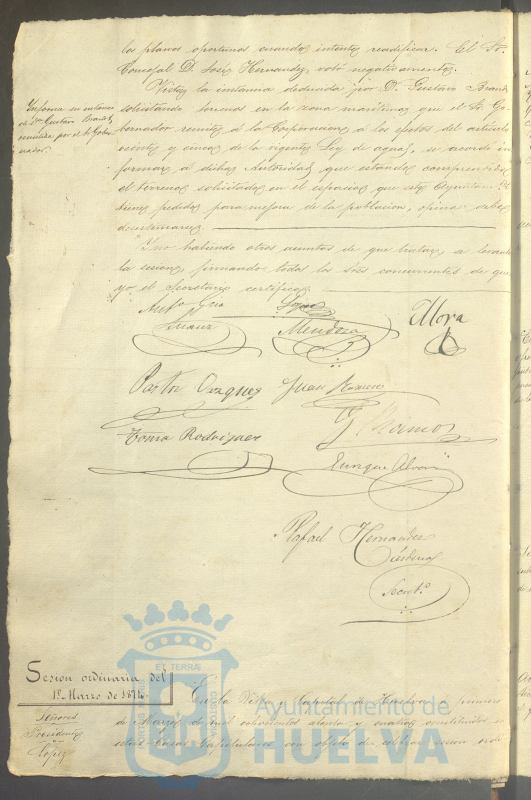 los planos oportunos cuando intente reedificar. El Sr.
Concejal D. José Hernandez, votó negativamente.
Vista la instancia deducida por D. Gustavo
solicitando terrenos en la zona maritima que el Sr. Go-
bernador remite á la Corporacion á los efectos del artículo
veinte y cinco de la vigente Ley de aguas, se acordó in-
formar á dicha Autoridad, que estando comprendido
el terreno solicitado en el espacio que este Ayuntamto.
tiene pedido para mejora de la poblacion, opina debe
desestimarse.
Y no habiendo otros asuntos de que tratar, se levantó
la sesion, firmando todos los Sres concurrentes de que
yo el Secretario certifico.
Informe en instancia
de Dn Gustavo
remitida por el Sr Gober-
nador.
Lopez
Mendoza
Mora
Pastor Vazquez
Juan
Rodriguez
Ramos
Enrique
Rafael Hernandez
Secreto.
Sesion ordinaria del
1º. Marzo de 1874
Señores
Presidente
Lopez
En la Villa, Capital de Huelva á primero
de Marzo de mil ochocientos setenta y cuatro, constituidos en
estas Casas Capitulares con objeto de celebrar sesion ordi-
ET TERRAE
Ayuntamiento de
HUELVA